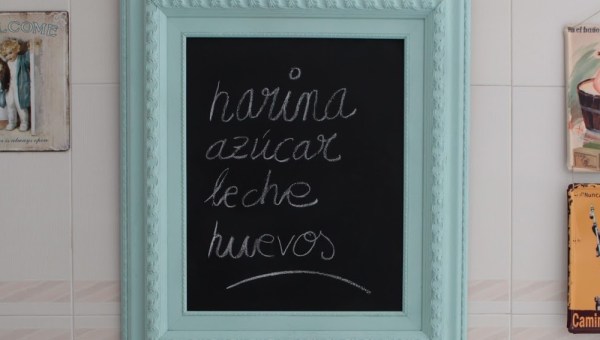 WELCOME
harina
azúcar
leche
huevos
Camin